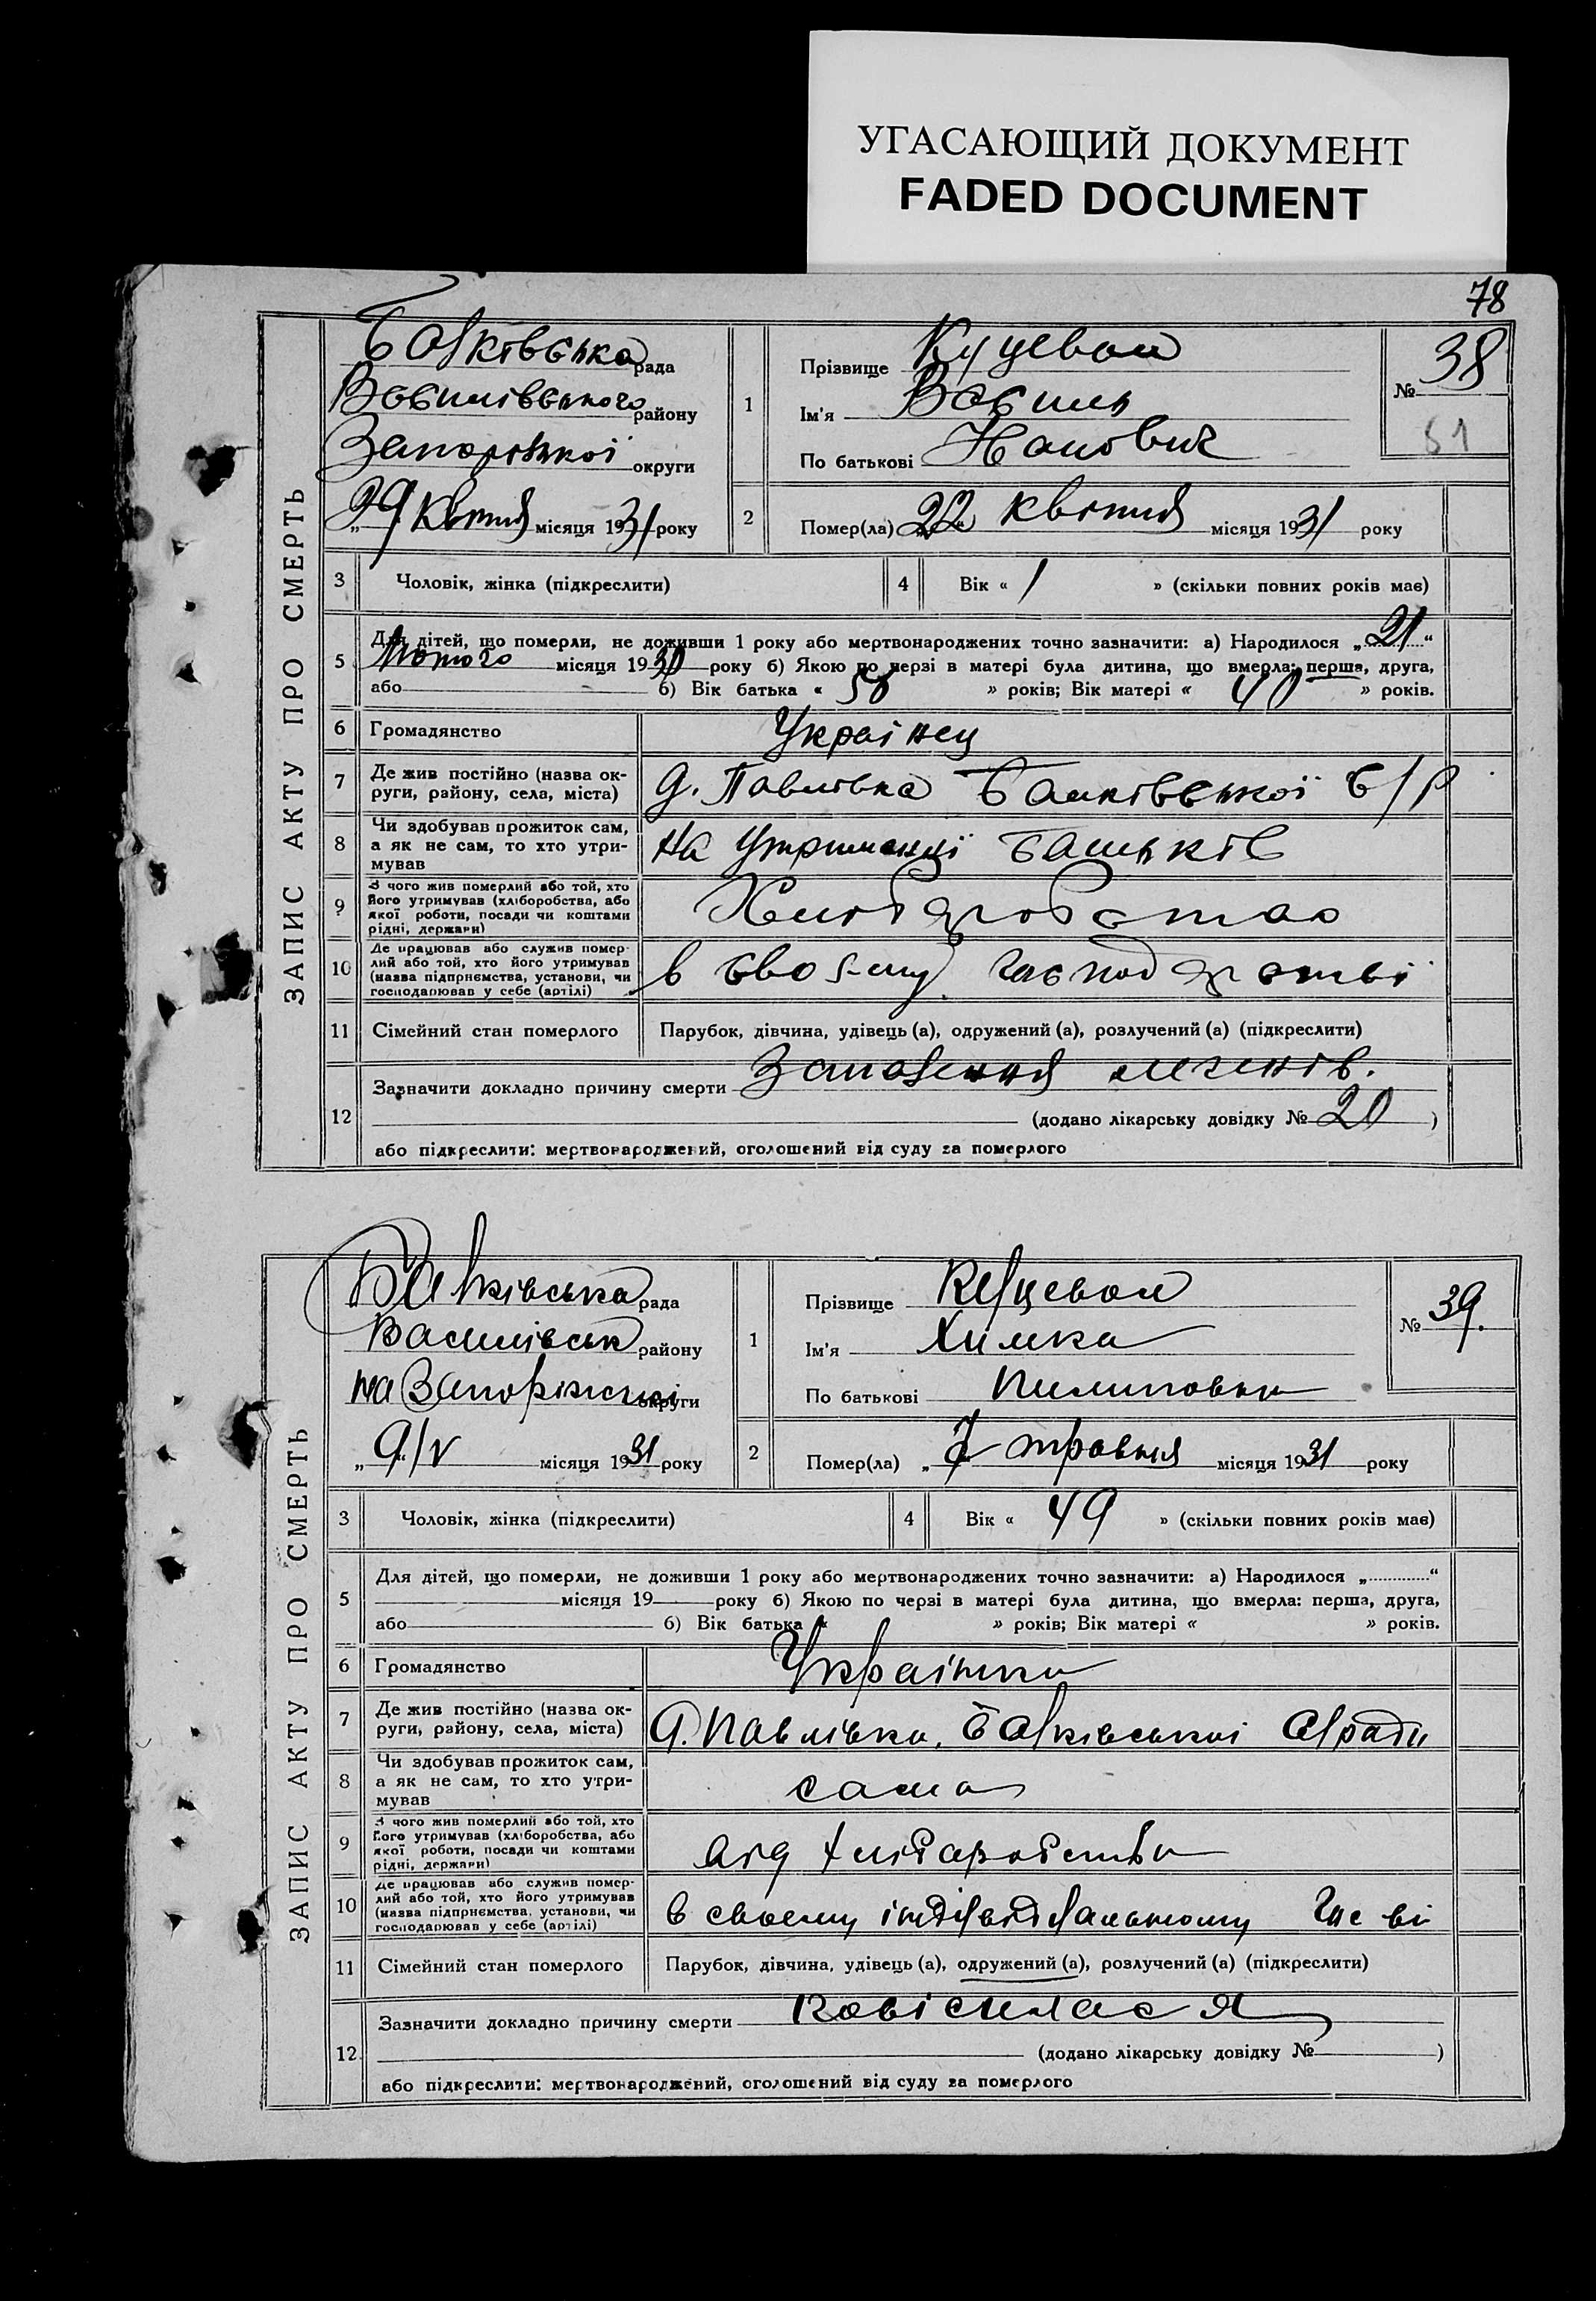 УГАСАЮЩИЙ ДОКУМЕНТ
FADED DOCUMENT
78
ЗАПИС АКТУ ПРО СМЕРТЬ
Балківська рада
Василівського району
Запоріжкої округи
„29 Квітня місяця 1931 року
1
Прізвище Куцевол
Ім'я Василь
По батькові
№ 38
51
2
Помер(ла) „22" квітня місяця 1931 року
3 Чоловік, жінка (підкреслити)
4 Вік « 1 » (скільки повних років має)
5 Для дітей, що померли, не доживши 1 року або мертвонароджених точно зазначити: а) Народилося „21"
Лютого місяця 1930 року б) Якою по черзі в матері була дитина, що вмерла: перша, друга,
або б) Вік батька « » років; Вік матері « 40 » років.
6 Громадянство Українец
7 Де жив постійно (назва ок-
руги, району, села, міста) д. Павлівка Балківської с/р
8 Чи здобував прожиток сам,
а як не сам, то хто утри-
мував на утриманці батьків
9 З чого жив померлий або той, хто
його утримував (хліборобства, або
якої роботи, посади чи коштами
рідні, держави) Хліборобство
10 Де працював або служив помер-
лий або той, хто його утримував
(назва підприємства, установи, чи
господарював у себе (артілі) в своєму господарстві
11 Сімейний стан померлого Парубок, дівчина, удівець (а), одружений (а), розлучений (а) (підкреслити)
12 Зазначити докладно причину смерти Запалення легенів.
(додано лікарську довідку № 20 )
або підкреслити: мертвонароджений, оголошений від суду за померлого
ЗАПИС АКТУ ПРО СМЕРТЬ
Балківська рада
Василівськ району
на Запоріжчині округи
„9/V місяця 1931 року
1
Прізвище Куцевол
Ім'я Химка
По батькові Пилиповна
№ 39.
2
Помер(ла) „7 травня місяця 1931 року
3 Чоловік, жінка (підкреслити)
4 Вік « 49 » (скільки повних років має)
5 Для дітей, що померли, не доживши 1 року або мертвонароджених точно зазначити: а) Народилося „ "
місяця 19 року б) Якою по черзі в матері була дитина, що вмерла: перша, друга,
або б) Вік батька « » років; Вік матері « » років.
6 Громадянство Українка
7 Де жив постійно (назва ок-
руги, району, села, міста) д. Павлівка, Балківської с/ради
8 Чи здобував прожиток сам,
а як не сам, то хто утри-
мував сама
9 З чого жив померлий або той, хто
його утримував (хліборобства, або
якої роботи, посади чи коштами
рідні, держави) від хліборобства
10 Де працював або служив помер-
лий або той, хто його утримував
(назва підприємства, установи, чи
господарював у себе (артілі) в своєму індівідуальному гос ві
11 Сімейний стан померлого Парубок, дівчина, удівець (а), одружений (а), розлучений (а) (підкреслити)
12 Зазначити докладно причину смерти повісилася
(додано лікарську довідку № )
або підкреслити: мертвонароджений, оголошений від суду за померлого